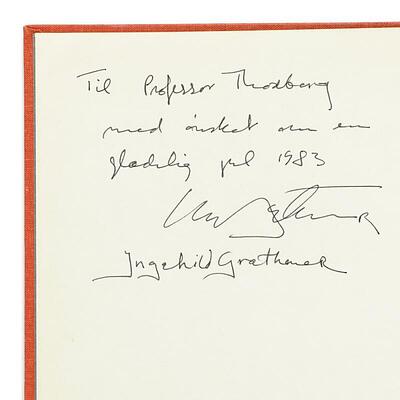 Til Professor Thorborg
med ønsket om en
glædelig jul 1983
Ingehild Grathmer